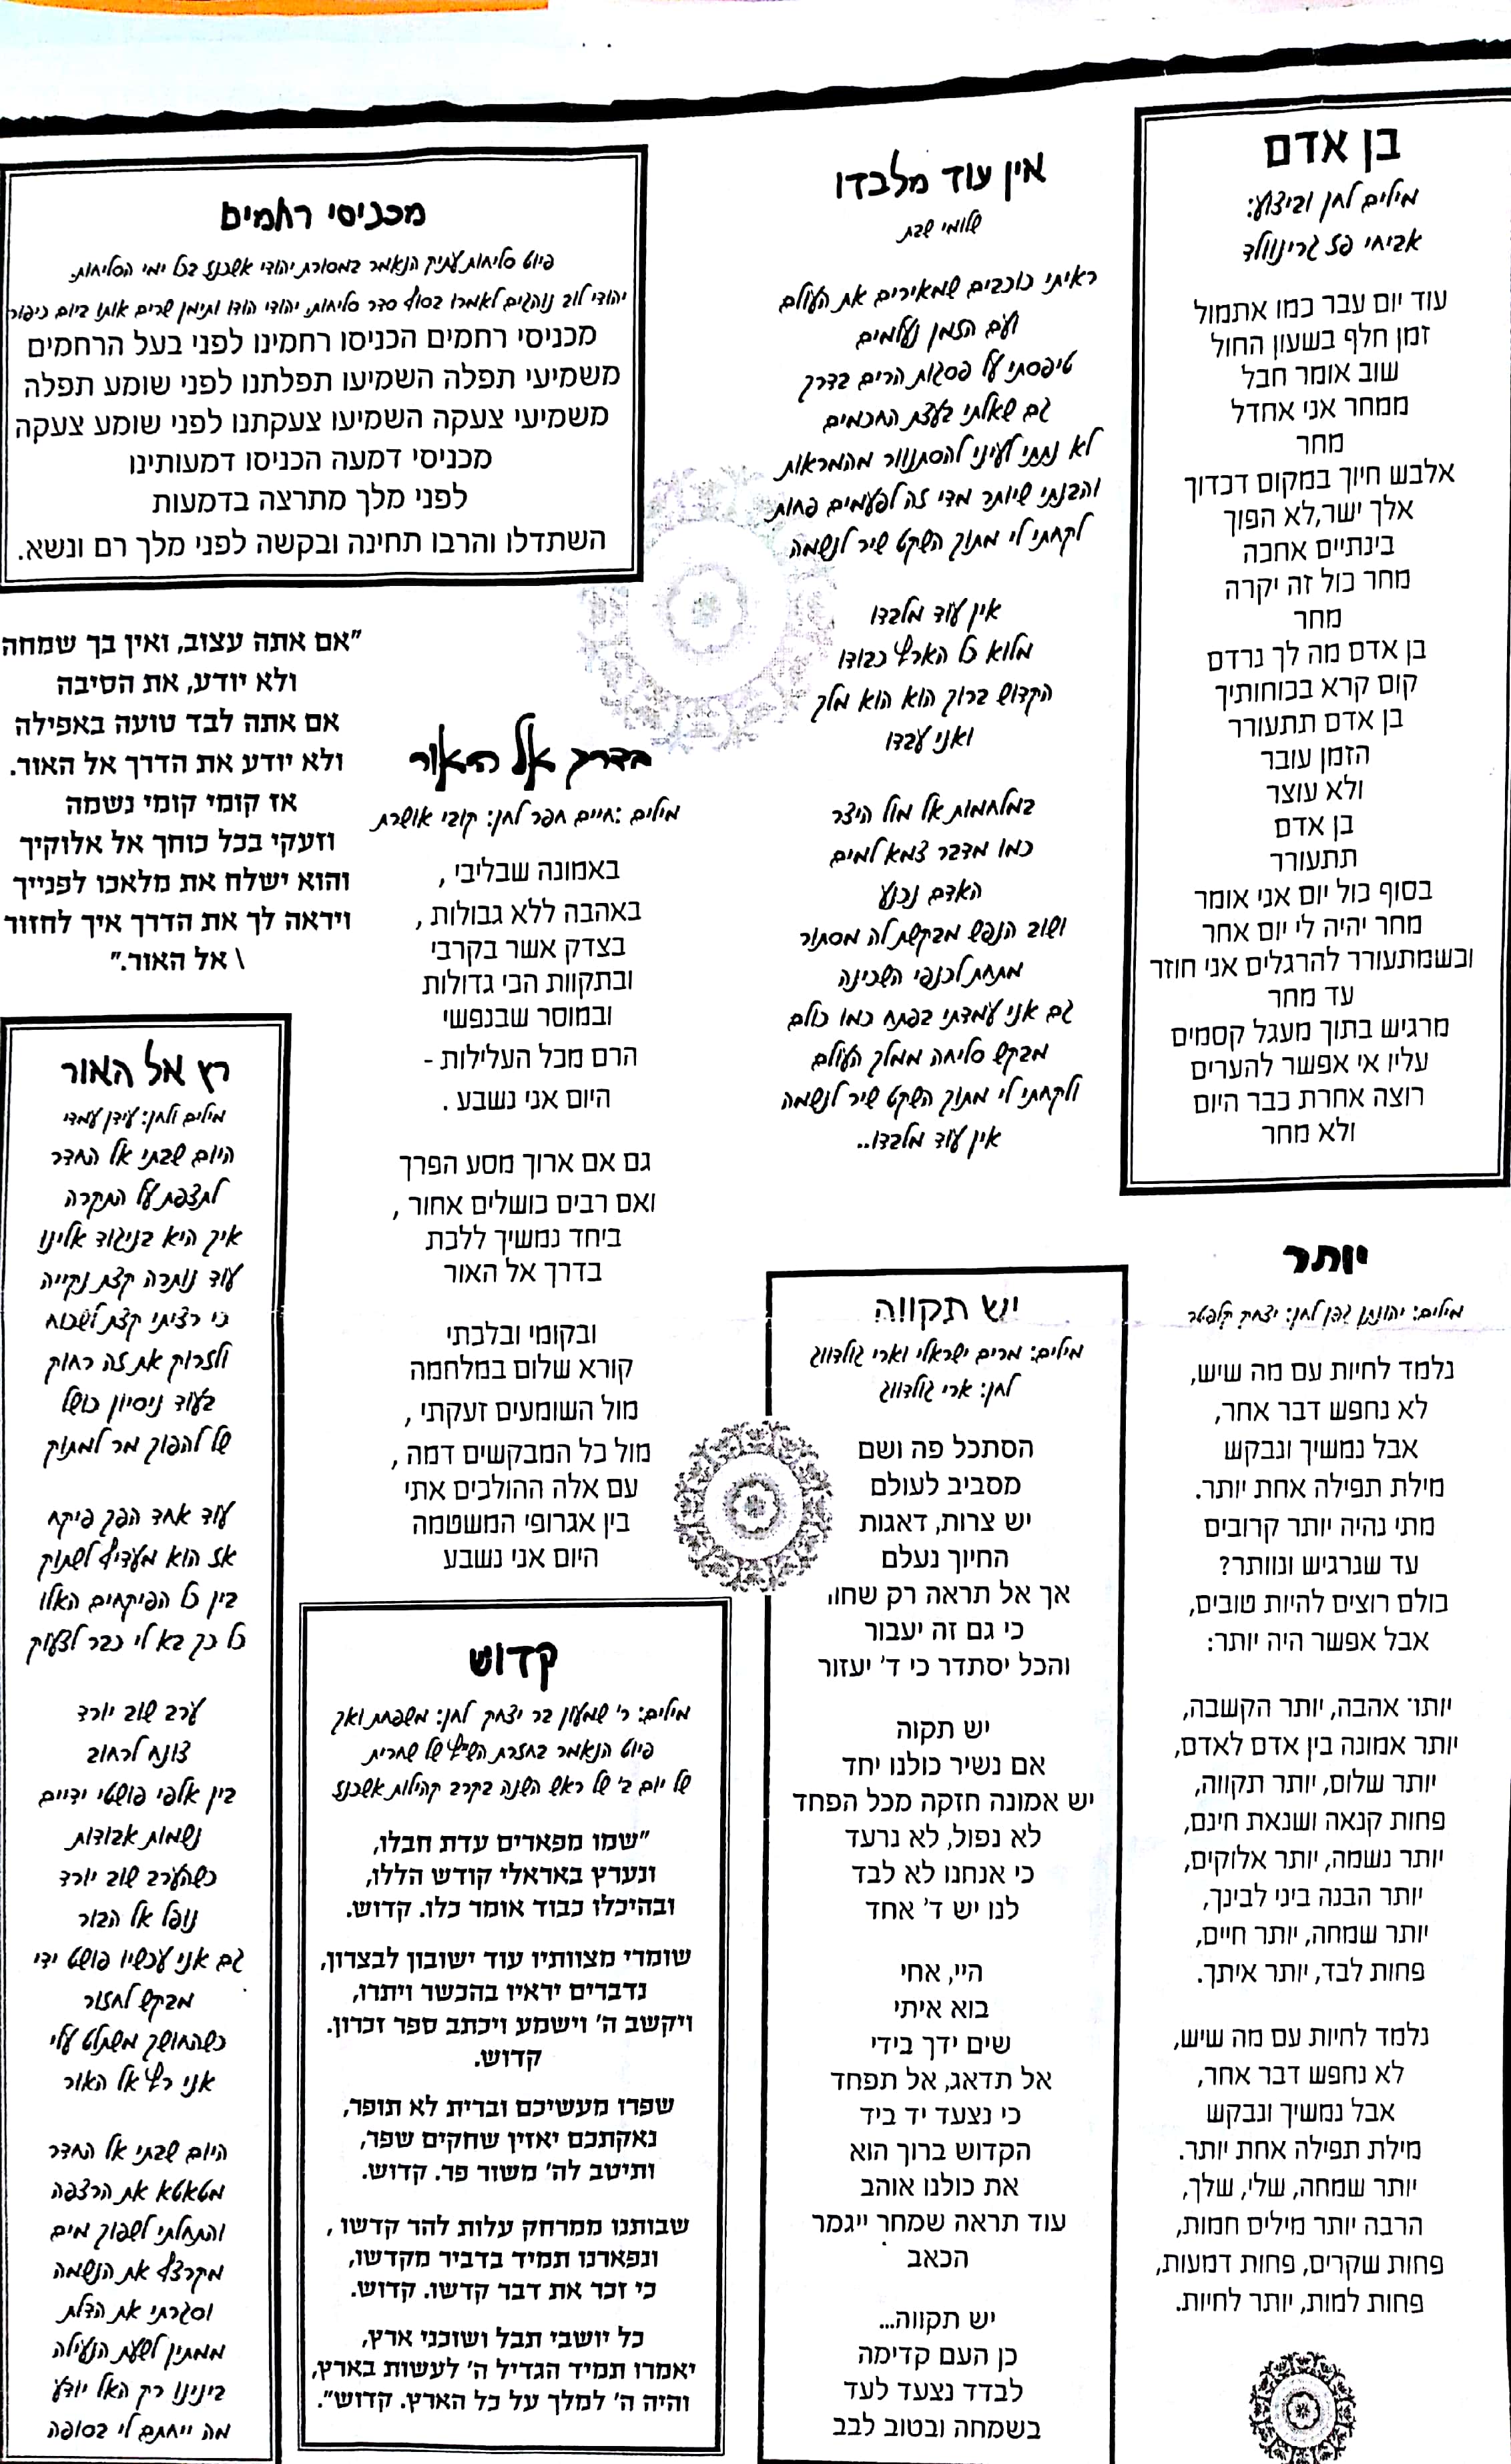 בן אדם
מילים לחן וביצוע:
אביחי פז גרינוולד
עוד יום עבר כמו אתמול
זמן חלף בשעון החול
שוב אומר חבל
ממחר אני אחדל
מחר
אלבש חיוך במקום דכדוך
אלך ישר,לא הפוך
בינתיים אחכה
מחר כול זה יקרה
מחר
בן אדם מה לך נרדם
קום קרא בכוחותיך
בן אדם תתעורר
הזמן עובר
ולא עוצר
בן אדם
תתעורר
בסוף כול יום אני אומר
מחר יהיה לי יום אחר
וכשמתעורר להרגלים אני חוזר
עד מחר
מרגיש בתוך מעגל קסמים
עליו אי אפשר להערים
רוצה אחרת כבר היום
ולא מחר
יותר
מילים: יהונתן גפן לחן: יצחק קלפטר
נלמד לחיות עם מה שיש,
לא נחפש דבר אחר,
אבל נמשיך ונבקש
מילת תפילה אחת יותר.
מתי נהיה יותר קרובים
עד שנרגיש ונוותר?
כולם רוצים להיות טובים,
אבל אפשר היה יותר:
יותר אהבה, יותר הקשבה,
יותר אמונה בין אדם לאדם,
יותר שלום, יותר תקווה,
פחות קנאה ושנאת חינם,
יותר נשמה, יותר אלוקים,
יותר הבנה ביני לבינך,
יותר שמחה, יותר חיים,
פחות לבד, יותר איתך.
נלמד לחיות עם מה שיש,
לא נחפש דבר אחר,
אבל נמשיך ונבקש
מילת תפילה אחת יותר.
יותר שמחה, שלי, שלך,
הרבה יותר מילים חמות,
פחות שקרים, פחות דמעות,
פחות למות, יותר לחיות.
אין עוד מלבדו
שלומי שבת
ראיתי כוכבים שמאירים את העולם
ועם הזמן נעלמים
טיפסתי על פסגות הרים בדרך
גם שאלתי בעצת החכמים
לא נתתי לעיני להסתנוור מהמראות
והבנתי שיותר מדי זה לפעמים פחות
לקחתי לי מתוק השקט שיר לנשמה
אין עוד מלבדו
מלוא כל הארץ כבודו
הקדוש ברוך הוא הוא מלך
ואני עבדו
במלחמות אל מול היצר
כמו מדבר צמא למים
האדם נכנע
ושוב הנפש מבקשת לה מסתור
מתחת לכנפי השכינה
גם אני עמדתי בפתח כמו כולם
מבקש סליחה ממלך העולם
ולקחתי לי מתוק השקט שיר לנשמה
אין עוד מלבדו..
יש תקווה
מילים: מרים ישראלי וארי גולדווג
לחן: ארי גולדווג
הסתכל פה ושם
מסביב לעולם
יש צרות, דאגות
החיוך נעלם
אך אל תראה רק שחור
כי גם זה יעבור
והכל יסתדר כי ד' יעזור
יש תקוה
אם נשיר כולנו יחד
יש אמונה חזקה מכל הפחד
לא נפול, לא נרעד
כי אנחנו לא לבד
לנו יש ד' אחד
היי, אחי
בוא איתי
שים ידך בידי
אל תדאג, אל תפחד
כי נצעד יד ביד
הקדוש ברוך הוא
את כולנו אוהב
עוד תראה שמחר ייגמר
הכאב
יש תקווה...
כן העם קדימה
לבדד נצעד לעד
בשמחה ובטוב לבב
מכניסי רחמים
פיוט סליחות עתיק הנאמר במסורת יהודי אשכנז בכל ימי הסליחות.
יהודי לוב נוהגים לאמרו בסוף סדר סליחות. יהודי הודו ותימן שרים אותו ביום כיפור
מכניסי רחמים הכניסו רחמינו לפני בעל הרחמים
משמיעי תפלה השמיעו תפלתנו לפני שומע תפלה
משמיעי צעקה השמיעו צעקתנו לפני שומע צעקה
מכניסי דמעה הכניסו דמעותינו
לפני מלך מתרצה בדמעות
השתדלו והרבו תחינה ובקשה לפני מלך רם ונשא.
בדרך אל האור
מילים :חיים חפר לחן: קובי אושרת
באמונה שבליבי ,
באהבה ללא גבולות ,
בצדק אשר בקרבי
ובתקוות הכי גדולות
ובמוסר שבנפשי
הרם מכל העלילות -
היום אני נשבע .
גם אם ארוך מסע הפרך
ואם רבים כושלים אחור ,
ביחד נמשיך ללכת
בדרך אל האור
ובקומי ובלכתי
קורא שלום במלחמה
מול השומעים זעקתי ,
מול כל המבקשים דמה ,
עם אלה ההולכים אתי
בין אגרופי המשטמה
היום אני נשבע
קדוש
מילים: ר' שמעון בר יצחק לחן: משפחת ואך
פיוט הנאמר בחזרת הש״ץ של שחרית
של יום ב' של ראש השנה בקרב קהילות אשכנז
"שמו מפארים עדת חבלו,
ונערץ באראלי קודש הללו,
ובהיכלו כבוד אומר כלו. קדוש.
שומרי מצוותיו עוד ישובון לבצרון,
נדברים יראיו בהכשר ויתרון,
ויקשב ה' וישמע ויכתב ספר זכרון.
קדוש.
שפרו מעשיכם וברית לא תופר,
נאקתכם יאזין שחקים שפר,
ותיטב לה' משור פר. קדוש.
שבותנו ממרחק עלות להר קדשו ,
ונפארנו תמיד בדביר מקדשו,
כי זכר את דבר קדשו. קדוש.
כל יושבי תבל ושוכני ארץ,
יאמרו תמיד הגדיל ה' לעשות בארץ,
והיה ה' למלך על כל הארץ. קדוש".
"אם אתה עצוב, ואין בך שמחה
ולא יודע, את הסיבה
אם אתה לבד טועה באפילה
ולא יודע את הדרך אל האור.
אז קומי קומי נשמה
וזעקי בכל כוחך אל אלוקיך
והוא ישלח את מלאכו לפנייך
ויראה לך את הדרך איך לחזור
\ אל האור."
רץ אל האור
מילים ולחן: עידן עמדי
היום שבתי אל החדר
לתצפת על התקרה
איך היא בניגוד אלינו
עוד נותרה קצת נקייה
כי רציתי קצת לשכוח
ולזרוק את זה רחוק
בעוד ניסיון כושל
של להפוך מר למתוק
עוד אחד הפך פיקח
אז הוא מעדיף לשתוק
בין כל הפיקחים האלו
כל כך בא לי כבר לצעוק
ערב שוב יורד
צונח לרחוב
בין אלפי פושטי ידיים
נשמות אבודות
כשהערב שוב יורד
נופל אל הבור
גם אני עכשיו פושט ידי
מבקש לחזור
כשהחושך משתלט עלי
אני רץ אל האור
היום שבתי אל החדר
מטאטא את הרצפה
והתחלתי לשפוך מים
מקרצף את הנשמה
וסגרתי את הדלת
ממתין לשעת הנעילה
בינינו רק האל יודע
מה ייחתם לי בסופה